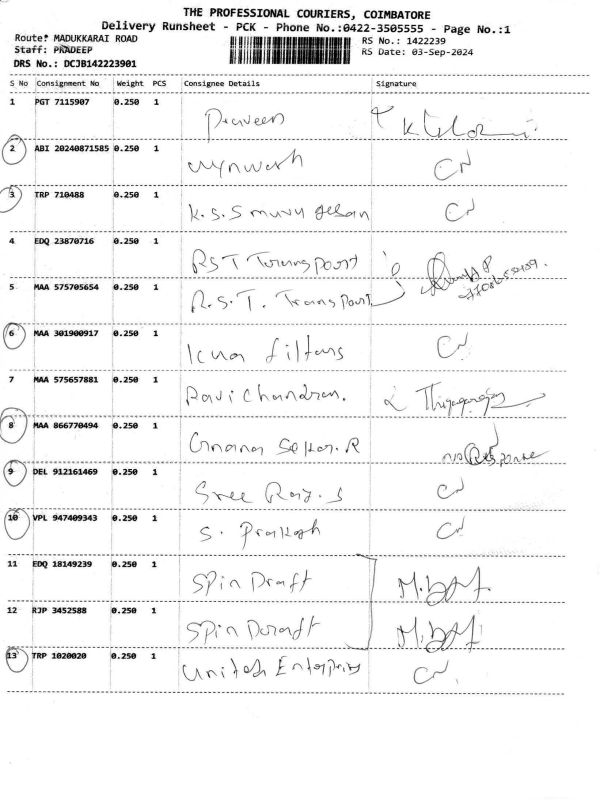 THE PROFESSIONAL COURIERS, COIMBATORE
Delivery Runsheet - PCK - Phone No.:0422-3505555 - Page No.:1
Route: MADUKKARAI ROAD
RS No.: 1422239
Staff: PRADEEP
RS Date: 03-Sep-2024
DRS No.: DCJB142223901
S No Consignment No Weight PCS Consignee Details Signature
1 PGT 7115907 0.250 1 Praveen
2 ABI 20240871585 0.250 1 CN
3 TRP 710488 0.250 1 K.S.S muruygesan CN
4 EDQ 23870716 0.250 1 RST Transport
5 MAA 575705654 0.250 1 R.S.T. Transport
6 MAA 301900917 0.250 1 filters CN
7 MAA 575657881 0.250 1 Ravi Chandran. Thiyagarajan
8 MAA 866770494 0.250 1 Gnana Sekar.R no Response
9 DEL 912161469 0.250 1 Sree Raj.S CN
10 VPL 947409343 0.250 1 S. Prakash CN
11 EDQ 18149239 0.250 1 Spin Draft
12 RJP 3452588 0.250 1 Spin Draft
13 TRP 1020020 0.250 1 United Enterprises CN